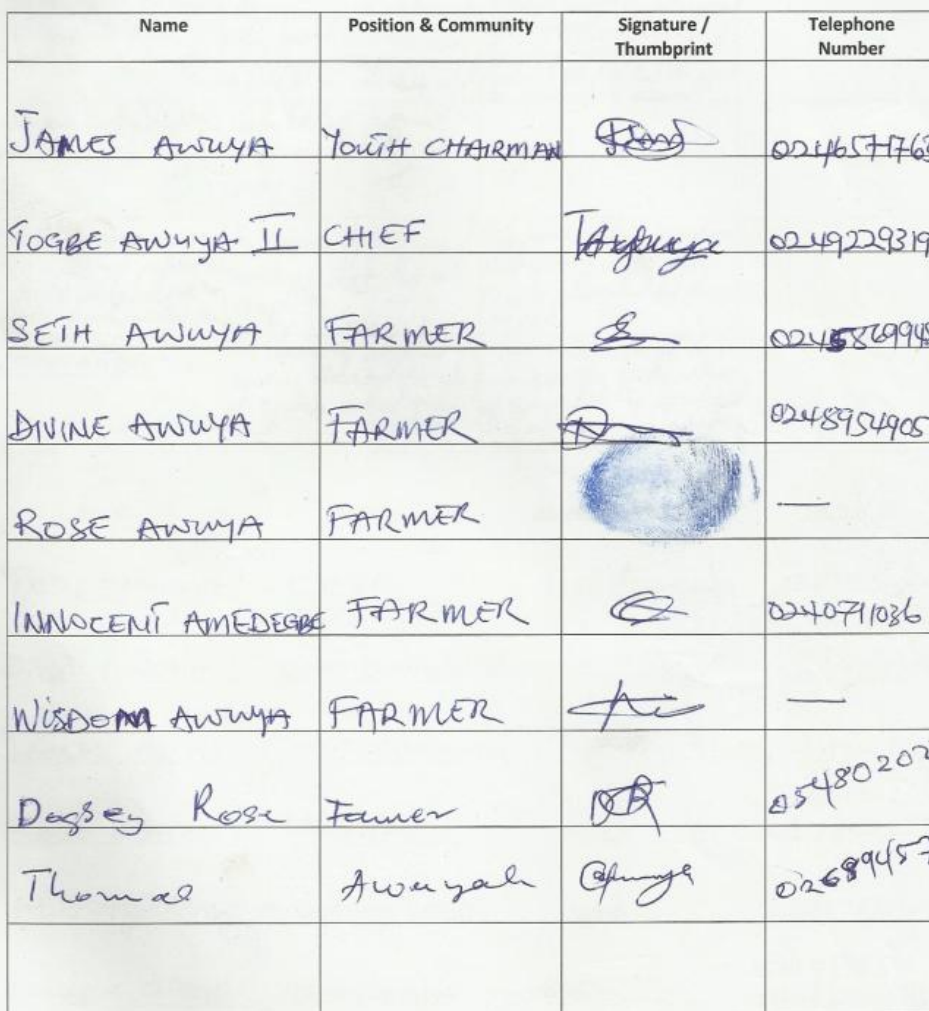 Name Position & Community Signature / Thumbprint Telephone Number
JAMES AWUYA YOUTH CHAIRMAN
TOGBE AWUYA II CHIEF 0249229319
SETH AWUYA FARMER
DIVINE AWUYA FARMER 0248954905
ROSE AWUYA FARMER —
INNOCENT AMEDEGBE FARMER 0240711036
WISDOM AWUYA FARMER —
Dogsey Rose Famer
Thomas Awuyah